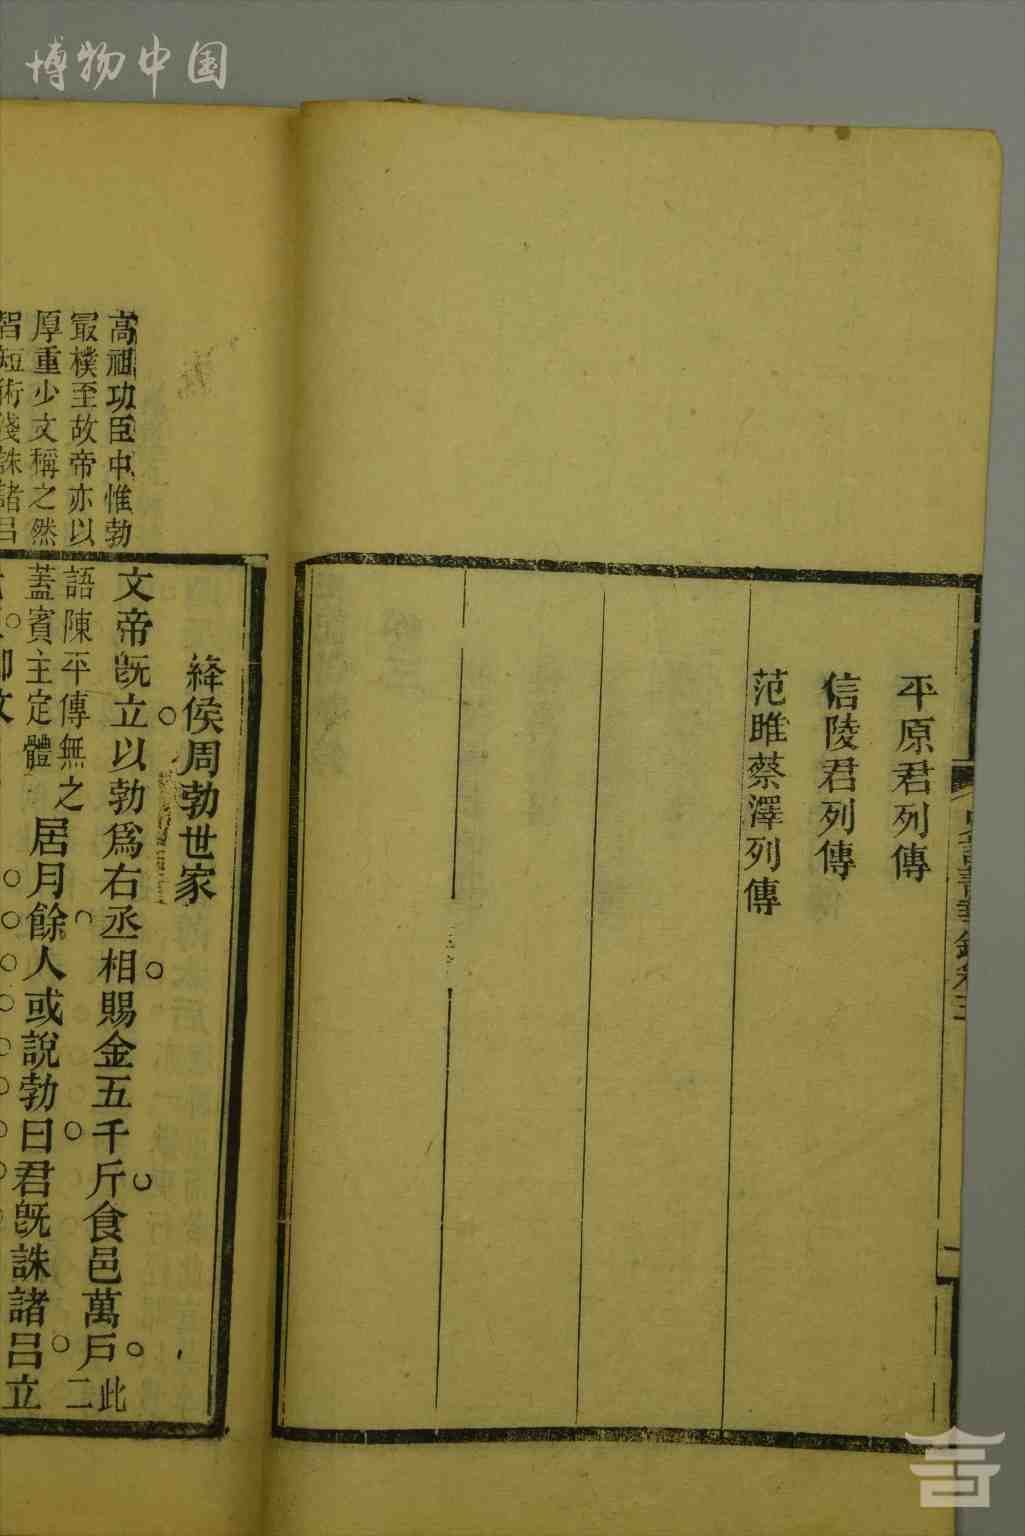 博物中国
平原君列傳
信陵君列傳
范雎蔡澤列傳
高祖功臣中惟勃
最樸至故帝亦以
厚重少文稱之然
智短術淺誅諸呂
絳侯周勃世家
文帝旣立以勃爲右丞相賜金五千斤食邑萬戶此二
語陳平傳無之
蓋賓主定體
居月餘人或說勃曰君旣誅諸呂立